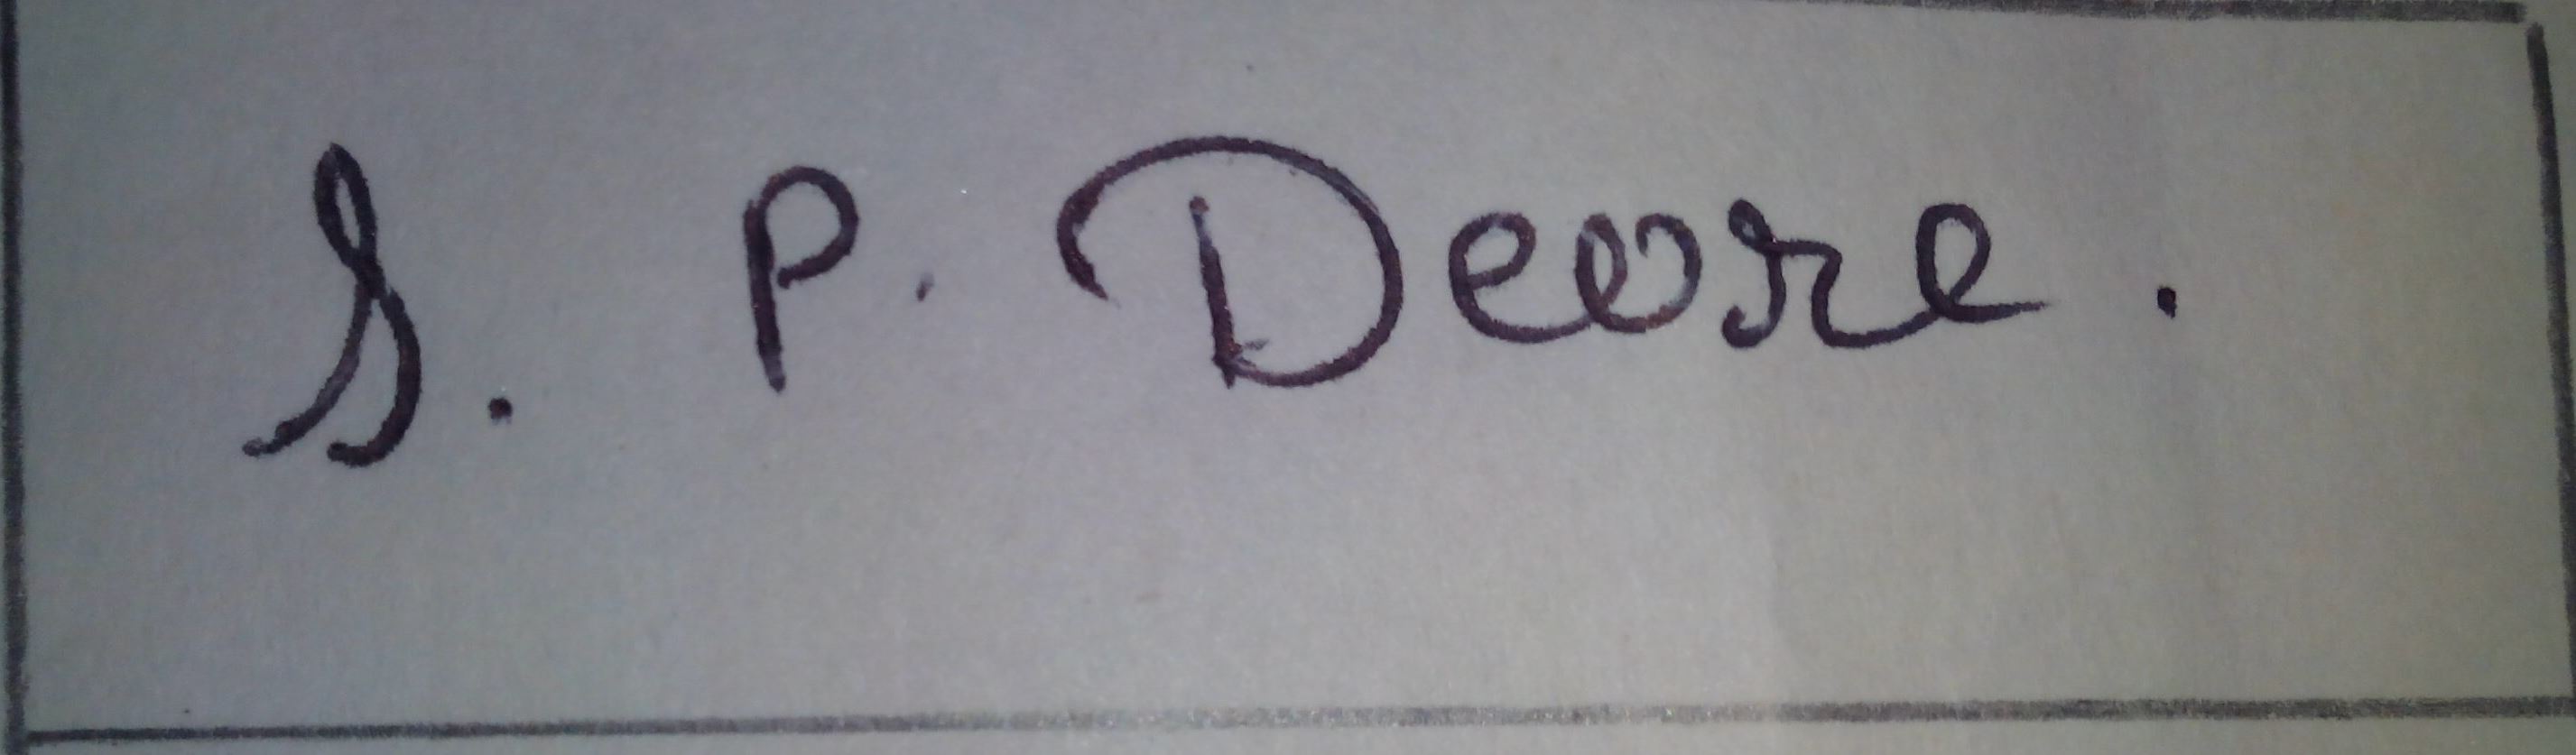 S. P. Deore.